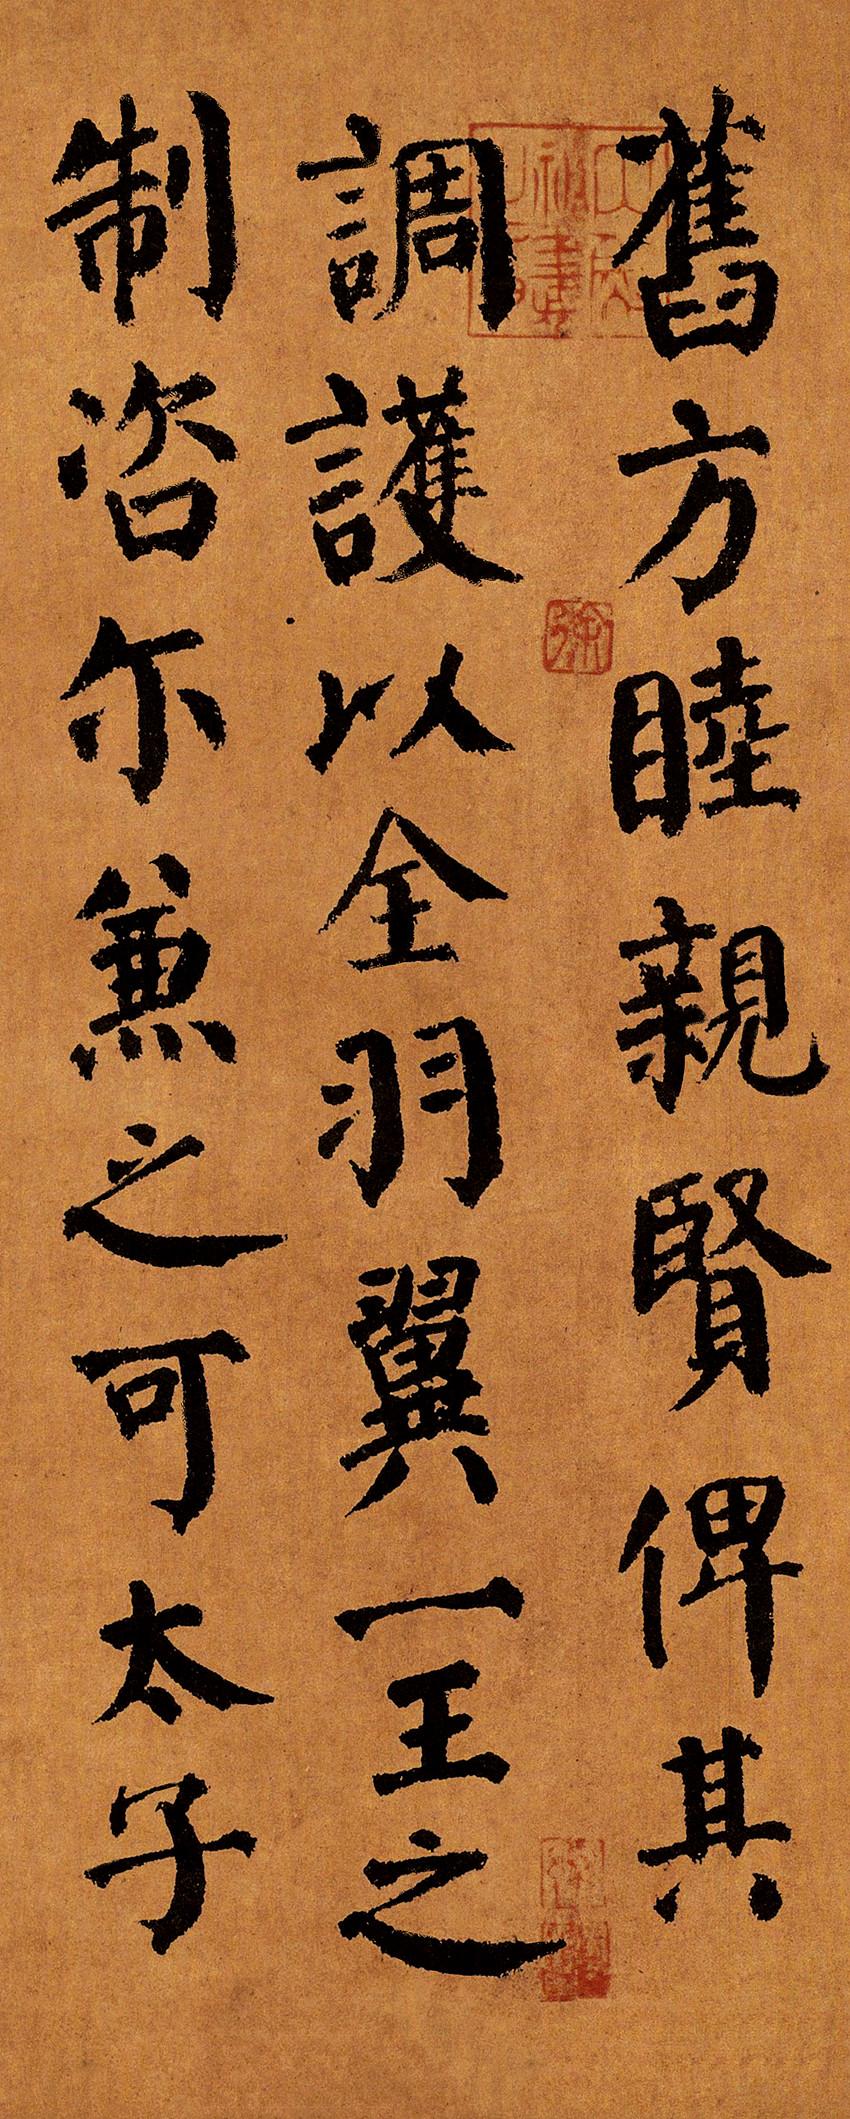 舊方睦親賢俾其
調護以全羽翼一王之
制咨尓兼之可太子